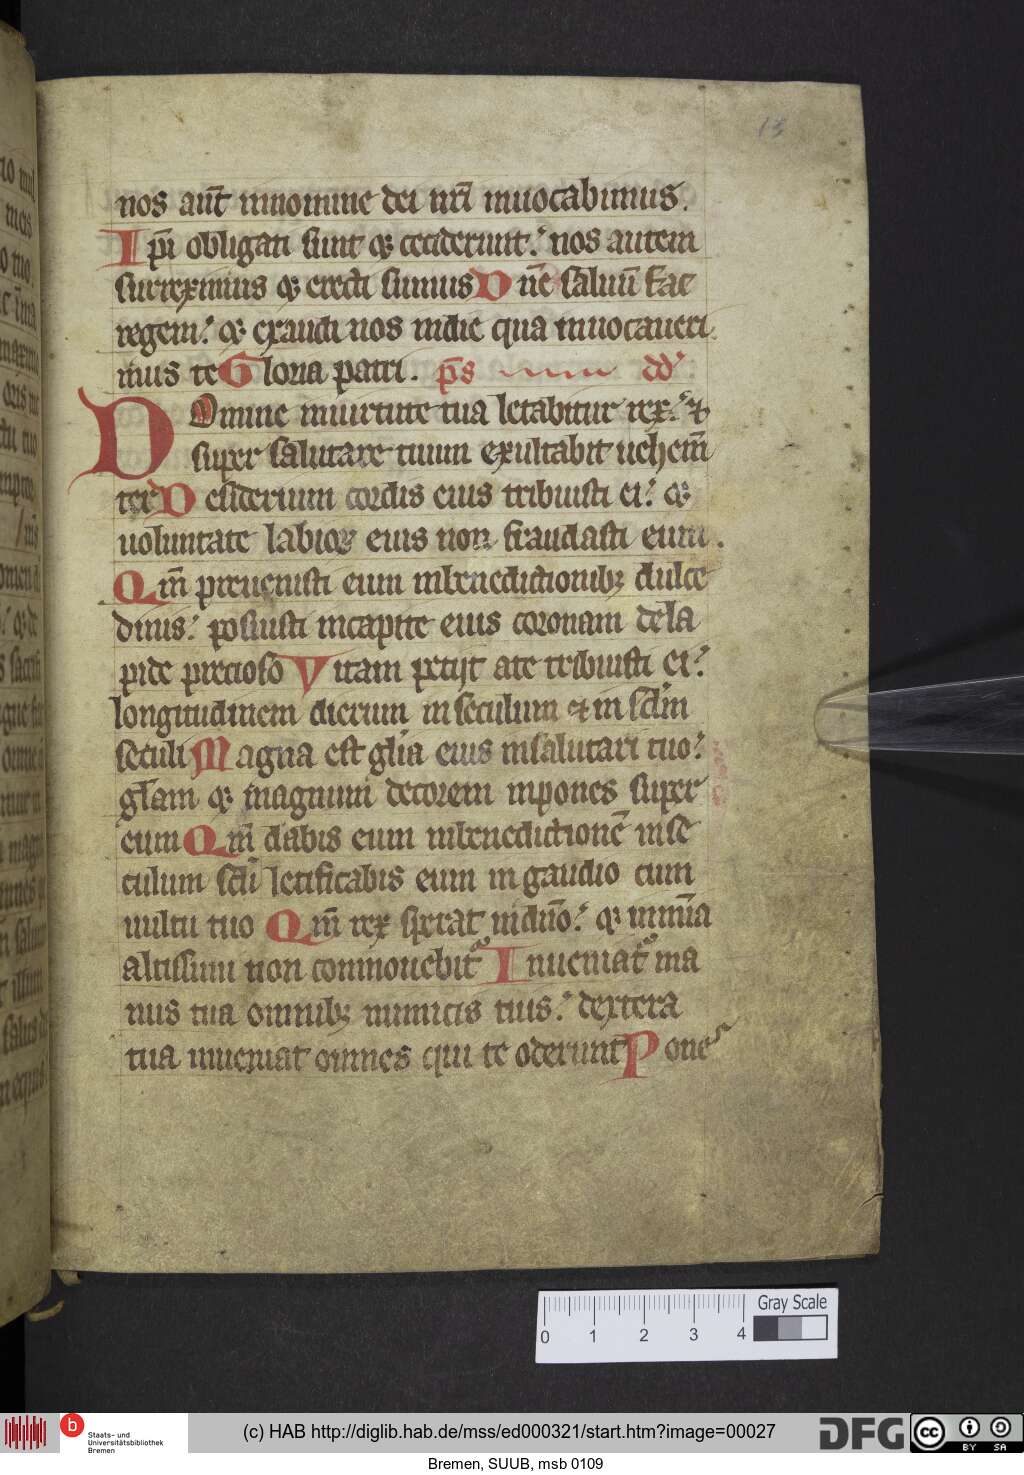 15
nos aut̄ innomine dei nr̄i inuocabimus.
Ip̄i obligati sunt ⁊ ceciderunt: nos autem
surreximus ⁊ erecti sumus Dn̄e saluū fac
regem: ⁊ exaudi nos indie qua inuocaueri
mus te Gloria patri. p̄s dd̄
Domine inuirtute tua letabitur rex: ⁊
super salutare tuum exultabit uehem̄
ter Desiderium cordis eius tribuisti ei: ⁊
uoluntate labioꝝ eius non fraudasti eum.
Qm̄ preuenisti eum inbenedictionibꝫ dulce
dinis: posuisti incapite eius coronam dela
pide precioso Vitam petijt ate tribuisti ei:
longitudinem dierum inseculum et in sclm̄
seculi Magna est gl̄ia eius insalutari tuo:
gl̄am ⁊ magnum decorem inpones super
eum Qm̄ dabis eum inbenedictionē inse
culum scl̄i letificabis eum in gaudio cum
uultu tuo Qm̄ rex sperat indn̄o: ⁊ inmiā
altissimi non commouebit̉ Inueniat̉ ma
nus tua omnibꝫ inimicis tuis: dextera
tua inueniat omnes qui te oderunt Pones
0 1 2 3 4
Gray Scale
Staats- und
Universitätsbibliothek
Bremen
(c) HAB http://diglib.hab.de/mss/ed000321/start.htm?image=00027
DFG
cc BY SA
Bremen, SUUB, msb 0109